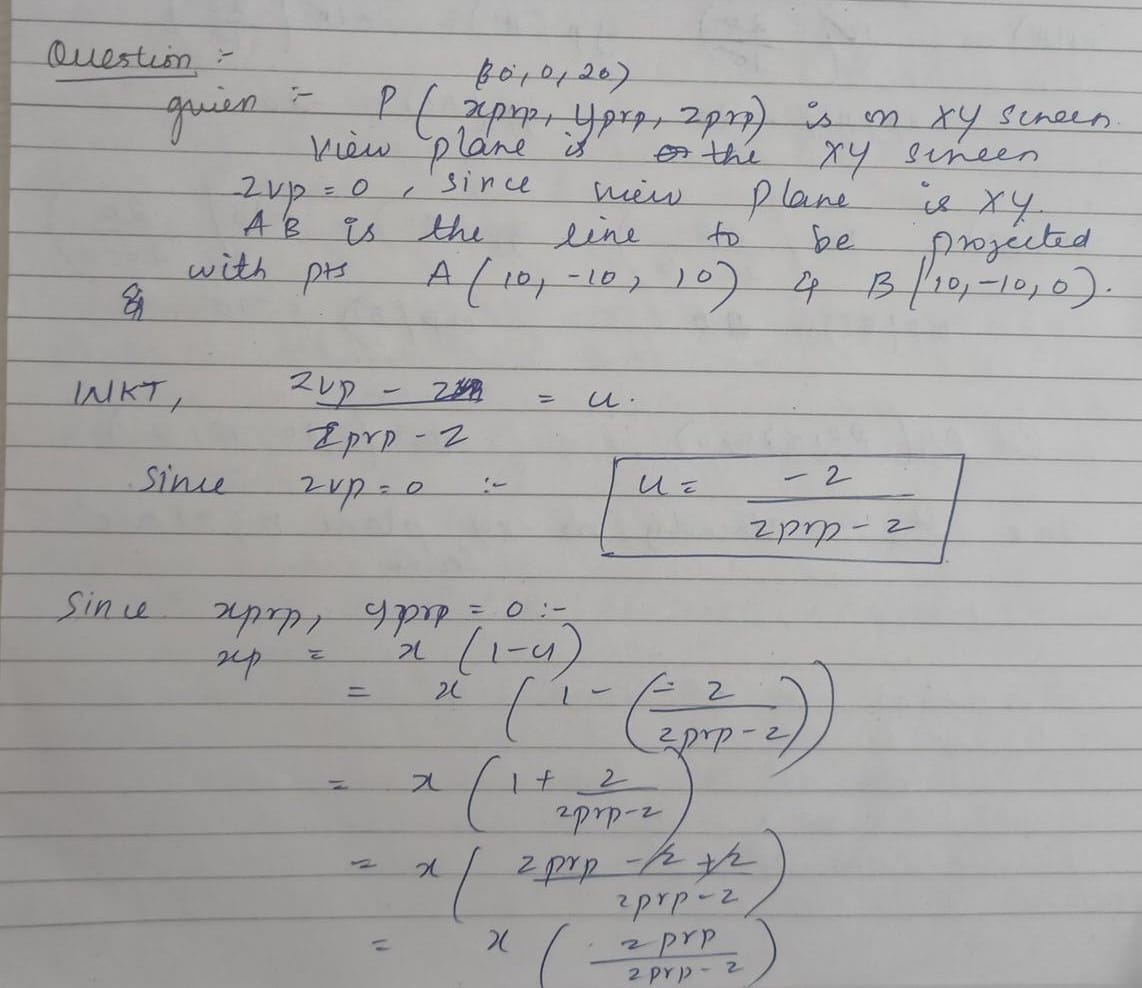 Question :-
(0, 0, 20)
given :- P ( xprp, yprp, zprp) is on XY screen.
View plane is the XY screen
zvp = 0 , since view plane is XY.
AB is the line to be projected
with pts A ( 10, -10, 10) & B (10, -10, 0).
WKT, zvp - z = u.
zprp - z
Since zvp = 0 :- u = - z
zprp - z
Since xprp, yprp = 0 :-
xp = x (1-u)
= x ( 1 - ( - z
zprp - z ))
= x ( 1 + z
zprp - z )
= x ( zprp - z + z
zprp - z )
= x ( zprp
zprp - z )